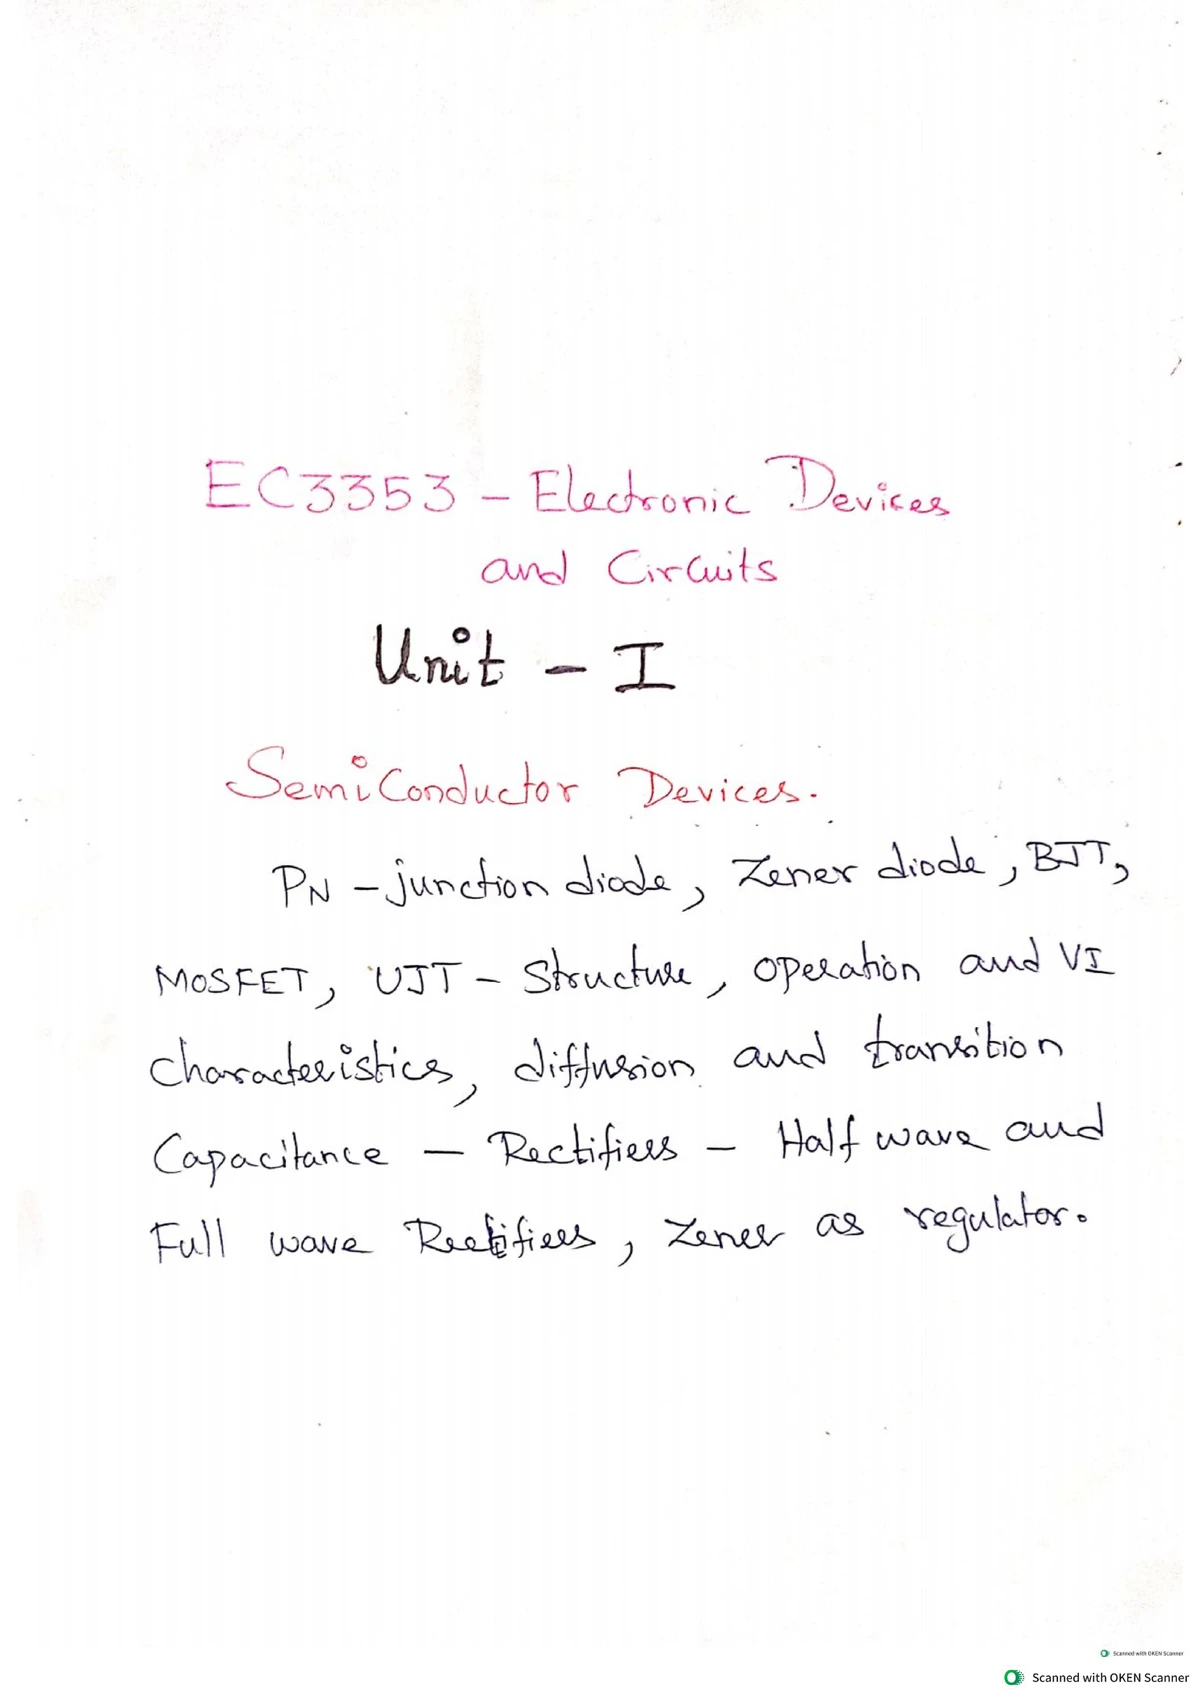 EC3353 - Electronic Devices
and Circuits
Unit - I
SemiConductor Devices.
PN - junction diode, Zener diode, BJT,
MOSFET, UJT - Structure, operation and VI
characteristics, diffusion and transition
Capacitance - Rectifiers - Half wave and
Full wave Rectifiers, Zener as regulator.
Scanned with OKEN Scanner
Scanned with OKEN Scanner